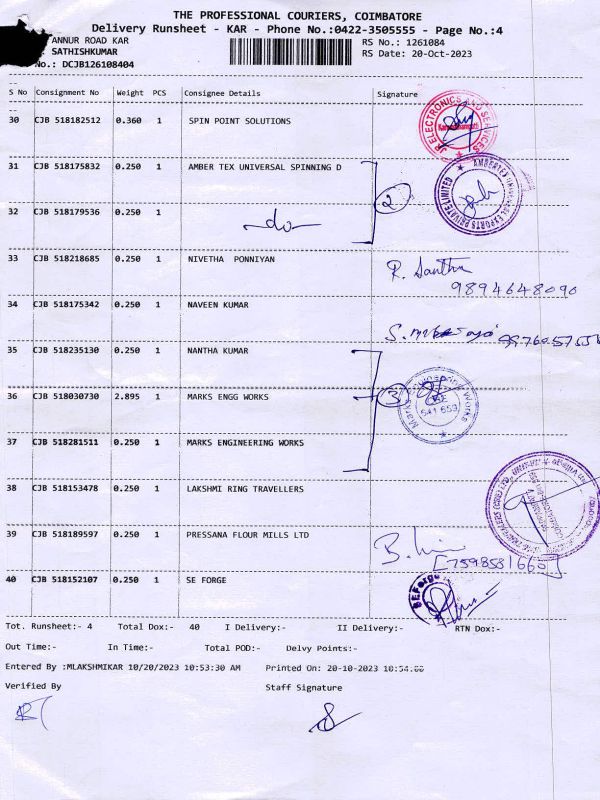 THE PROFESSIONAL COURIERS, COIMBATORE
Delivery Runsheet - KAR - Phone No.:0422-3505555 - Page No.:4
ANNUR ROAD KAR RS No.: 1261084
SATHISHKUMAR RS Date: 20-Oct-2023
No.: DCJB126108404
S No Consignment No Weight PCS Consignee Details Signature
30 CJB 518182512 0.360 1 SPIN POINT SOLUTIONS
31 CJB 518175832 0.250 1 AMBER TEX UNIVERSAL SPINNING D
2
32 CJB 518179536 0.250 1 -do-
33 CJB 518218685 0.250 1 NIVETHA PONNIYAN R. Santha
9894648090
34 CJB 518175342 0.250 1 NAVEEN KUMAR
35 CJB 518235130 0.250 1 NANTHA KUMAR
36 CJB 518030730 2.895 1 MARKS ENGG WORKS 3
37 CJB 518281511 0.250 1 MARKS ENGINEERING WORKS
38 CJB 518153478 0.250 1 LAKSHMI RING TRAVELLERS
39 CJB 518189597 0.250 1 PRESSANA FLOUR MILLS LTD
[7598581660]
40 CJB 518152107 0.250 1 SE FORGE
Tot. Runsheet:- 4 Total Dox:- 40 I Delivery:- II Delivery:- RTN Dox:-
Out Time:- In Time:- Total POD:- Delvy Points:-
Entered By :MLAKSHMIKAR 10/20/2023 10:53:30 AM Printed On: 20-10-2023
Verified By Staff Signature